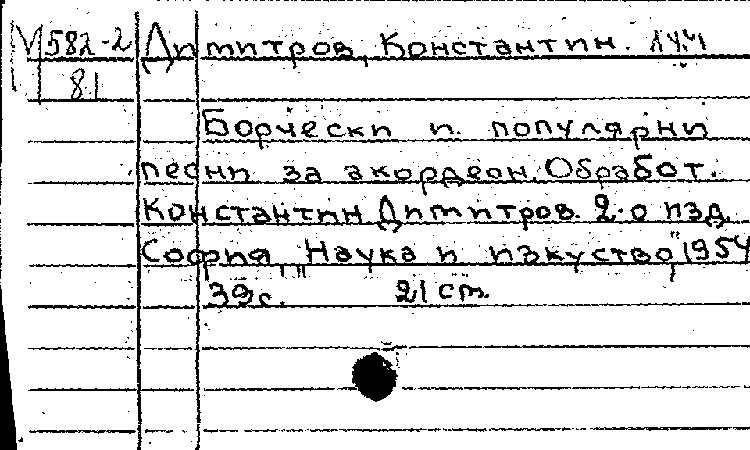 М 582-2 Димитров, Константин.
81
Борчески и популярни
песни за акордеон. Обработ.
Константин Димитров. 2.о изд.
София, "Наука и изкуство", 1954
39 с. 21 cm.